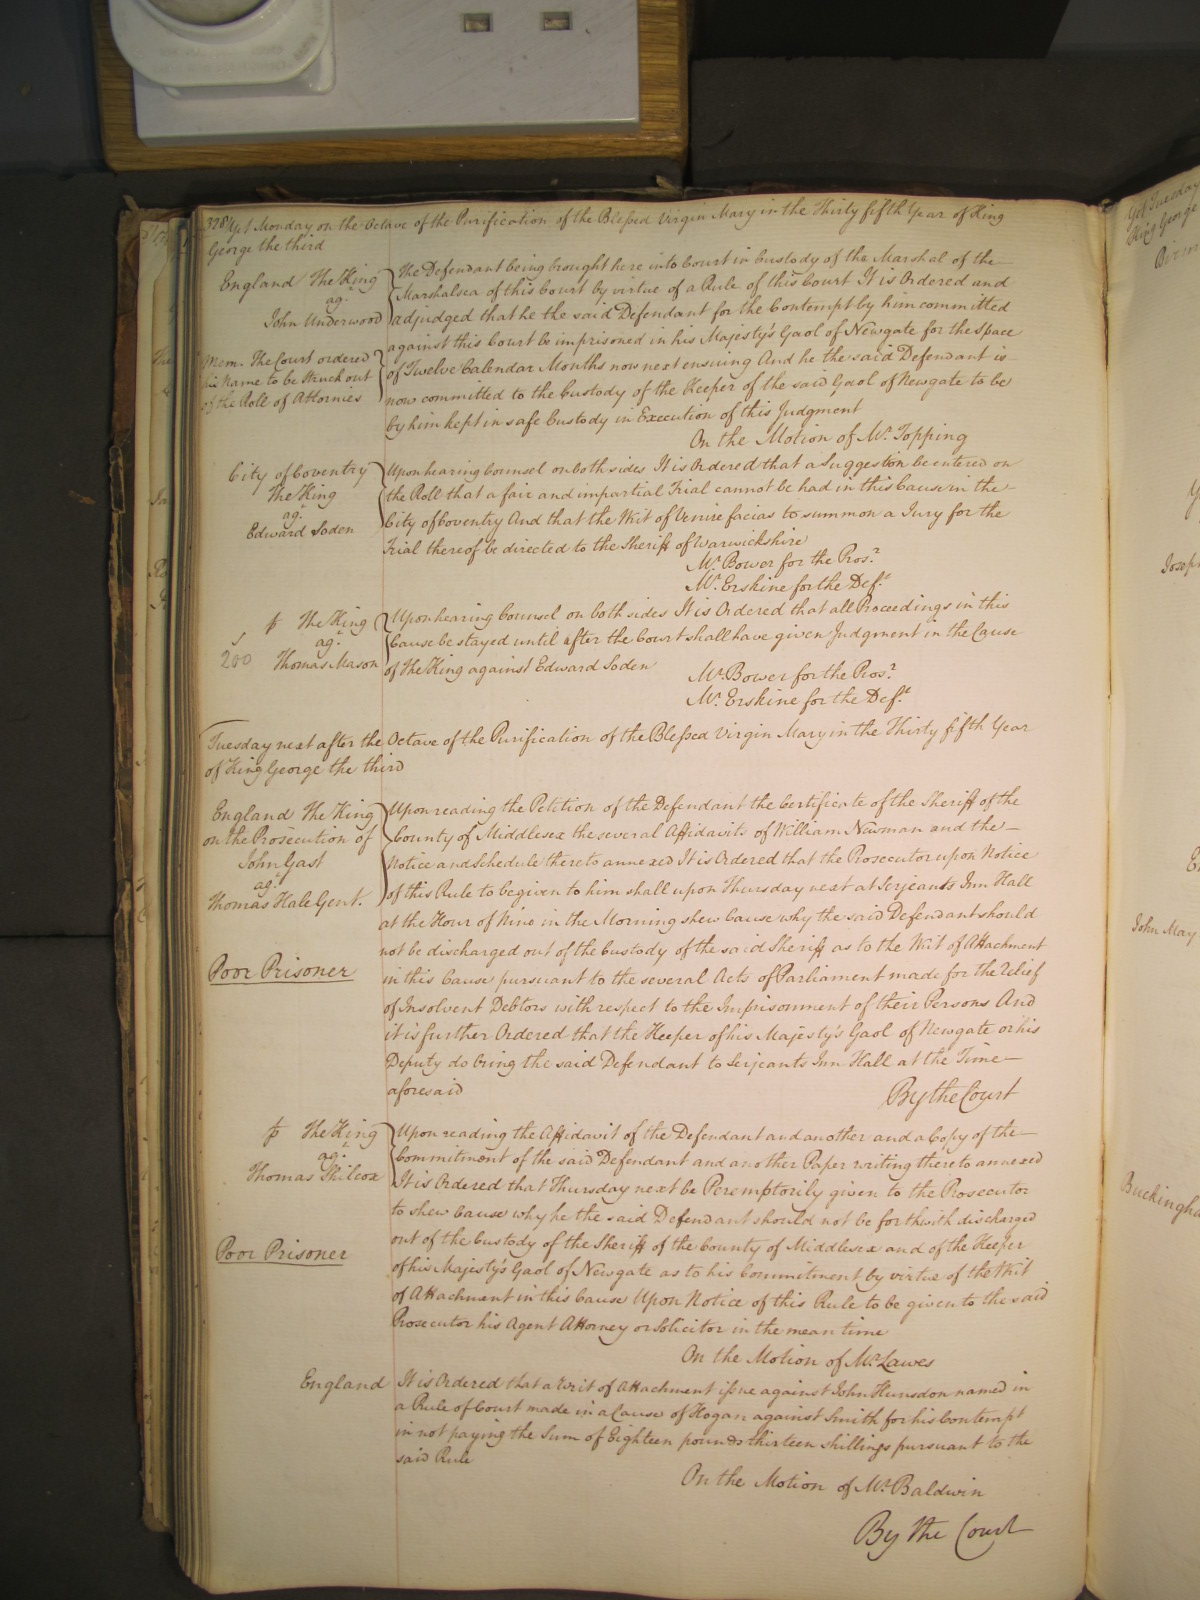 328 Yet Monday on the Octave of the Purification of the Blessed Virgin Mary in the Thirty fifth Year of King
George the third
England The King
agt.
John Underwood
Mem. The Court ordered
his Name to be Struck out
of the Roll of Attornies
The Defendant being brought here into Court in Custody of the Marshal of the
Marshalsea of this Court by virtue of a Rule of this Court It is Ordered and
adjudged that he the said Defendant for the Contempt by him committed
against this Court be imprisoned in his Majesty's Gaol of Newgate for the Space
of Twelve Calendar Months now next ensuing And he the said Defendant is
now committed to the Custody of the Keeper of the said Gaol of Newgate to be
by him kept in safe Custody in Execution of this Judgment
On the Motion of Mr. Topping
City of Coventry
The King
agt.
Edward Soden
Upon hearing Counsel on both sides It is Ordered that a Suggestion be entered on
the Roll that a fair and impartial Trial cannot be had in this Cause in the
City of Coventry And that the Writ of Venire facias to summon a Jury for the
Trial thereof be directed to the Sheriff of Warwickshire
Mr. Bower for the Prosr.
Mr. Erskine for the Deft.
The King
agt.
200 Thomas Mason
Upon hearing Counsel on both sides It is Ordered that all Proceedings in this
Cause be stayed until after the Court shall have given Judgment in the Cause
of The King against Edward Soden
Mr. Bower for the Prosr.
Mr. Erskine for the Deft.
Tuesday next after the Octave of the Purification of the Blessed Virgin Mary in the Thirty fifth Year
of King George the third
England The King
on the Prosecution of
John Gast
agt.
Thomas Hale Gent.
Poor Prisoner
Upon reading the Petition of the Defendant the Certificate of the Sheriff of the
County of Middlesex the several Affidavits of William Newman and the
Notice and Schedule thereto annexed It is Ordered that the Prosecutor upon Notice
of this Rule to be given to him shall upon Thursday next at Serjeants Inn Hall
at the Hour of Nine in the Morning shew Cause why the said Defendant should
not be discharged out of the Custody of the said Sheriff as to the Writ of Attachment
in this Cause pursuant to the several Acts of Parliament made for the Relief
of Insolvent Debtors with respect to the Imprisonment of their Persons And
it is further Ordered that the Keeper of his Majesty's Gaol of Newgate or his
Deputy do bring the said Defendant to Serjeants Inn Hall at the Time
aforesaid
By the Court
The King
agt.
Thomas Philcox
Poor Prisoner
Upon reading the Affidavit of the Defendant and another and a Copy of the
Commitment of the said Defendant and another Paper writing thereto annexed
It is Ordered that Thursday next be Peremptorily given to the Prosecutor
to shew Cause why he the said Defendant should not be forthwith discharged
out of the Custody of the Sheriff of the County of Middlesex and of the Keeper
of his Majesty's Gaol of Newgate as to his Commitment by virtue of the Writ
of Attachment in this Cause Upon Notice of this Rule to be given to the said
Prosecutor his Agent Attorney or Solicitor in the mean time
On the Motion of Mr. Lawes
England
It is Ordered that a Writ of Attachment issue against John Hunsdon named in
a Rule of Court made in a Cause of Hogan against Smith for his Contempt
in not paying the Sum of Eighteen pounds thirteen shillings pursuant to the
said Rule
On the Motion of Mr. Baldwin
By the Court
Yet Tuesday
King George
Joseph
John May
Buckingha